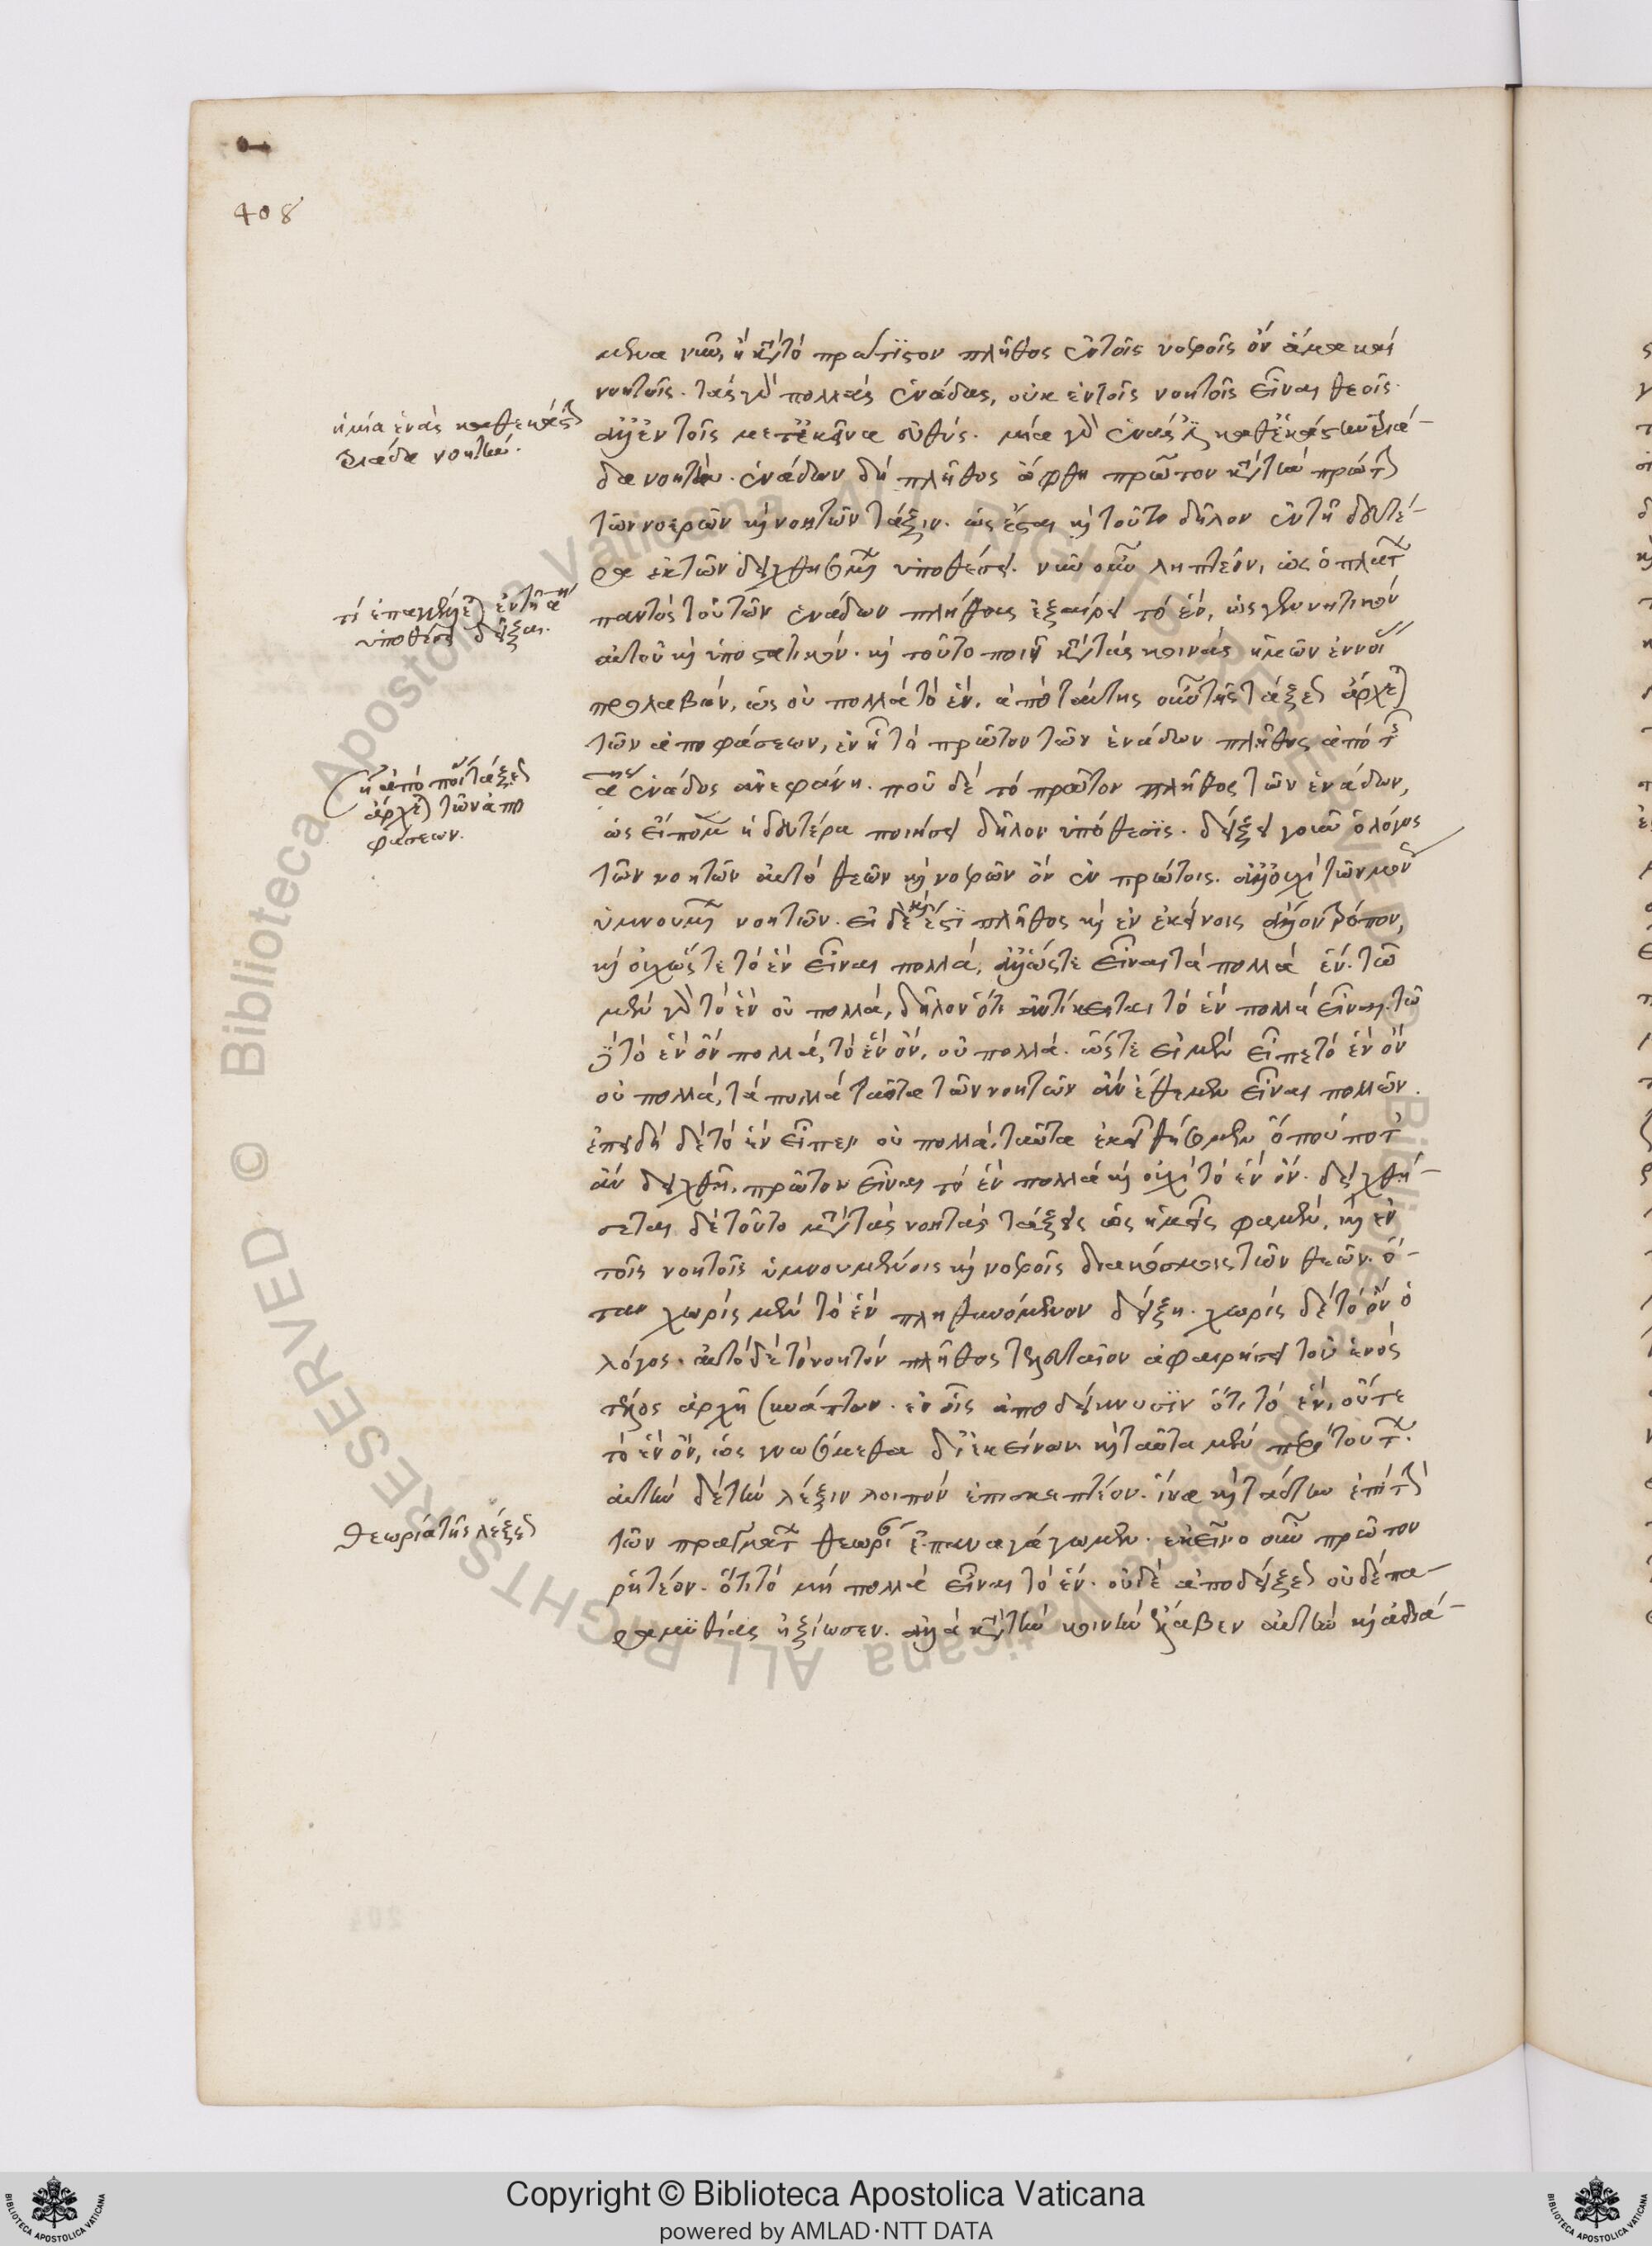 408
μενα νῦν, ἢ κατὰ τὸ πρώτιστον πλῆθος ἐν τοῖς νοεροῖς ὂν ἅμα καὶ
νοητοῖς. τὰς γὰρ πολλὰς ἑνάδας, οὐκ ἐν τοῖς νοητοῖς εἶναι θεοῖς.
ἀλλ' ἐν τοῖς μετ' ἐκεῖνα εὐθύς. μία γὰρ ἑνὰς καθ' ἑκάστην τριά-
δα νοητήν. ἑνάδων δὴ πλῆθος ὤφθη πρῶτον κατὰ τὴν πρώτην
τῶν νοερῶν καὶ νοητῶν τάξιν. ὡς ἔσται καὶ τοῦτο δῆλον ἐν τῇ δευτέ-
ρα ἐκ τῶν δειχθησομένων ὑποθέσει. νῦν οὖν ληπτέον, ὡς ὁ πλάτων
παντὸς τοῦ τῶν ἑνάδων πλήθους ἐξαίρει τὸ ἕν, ὡς γεννητικὸν
αὐτοῦ καὶ ὑποστατικόν. καὶ τοῦτο ποιεῖ κατὰ τὰς κοινὰς ἡμῶν ἐννοίας
προλαβών, ὡς οὐ πολλὰ τὸ ἕν. ἀπὸ ταύτης οὖν τῆς τάξεως ἄρχεται
τῶν ἀποφάσεων, ἐν ᾗ τὸ πρῶτον τῶν ἑνάδων πλῆθος ἀπὸ τῆς
αης ἑνάδος ἀνεφάνη. ποῦ δὲ τὸ πρῶτον πλῆθος τῶν ἑνάδων,
ὡς εἴπομεν ἡ δευτέρα ποιήσει δῆλον ὑπόθεσις. δείξει γοῦν ὁ λόγος
τῶν νοητῶν αὐτὸ θεῶν καὶ νοερῶν ὂν ἐν πρώτοις. ἀλλ' οὐχὶ τῶν μόνον
ὑμνουμένων νοητῶν. εἰ δὲ καὶ ἔστι πλῆθος καὶ ἐν ἐκείνοις ἄλλον τρόπον,
καὶ οὐχ ὥστε τὸ ἓν εἶναι πολλά, ἀλλ' ὥστε εἶναι τὰ πολλὰ ἕν. τῷ
μὲν γὰρ τὸ ἓν οὐ πολλά, δῆλον ὅτι ἀντίκειται τὸ ἓν πολλὰ εἶναι. τῷ
δὲ τὸ ἓν ὂν πολλά, τὸ ἓν ὄν, οὐ πολλά. ὥστε εἰ μὲν εἶπε τὸ ἓν ὂν
οὐ πολλά, τὰ πολλὰ ταῦτα τῶν νοητῶν ἂν ἔθεμεν εἶναι πολλῶν.
ἐπειδὴ δὲ τὸ ἓν εἶπεν οὐ πολλά, ταῦτα ἐκεῖ θήσομεν ὅπου ποτ'
ἂν δειχθῇ, πρῶτον εἶναι τὸ ἓν πολλὰ καὶ οὐχὶ τὸ ἓν ὄν. δειχθή-
σεται δὲ τοῦτο μετὰ τὰς νοητὰς τάξεις ὡς ἡμεῖς φαμέν, καὶ ἐν
τοῖς νοητοῖς ὑμνουμένοις καὶ νοεροῖς διακόσμοις τῶν θεῶν. ὅ-
ταν χωρὶς μὲν τὸ ἓν πληθυνόμενον δείξῃ. χωρὶς δὲ τὸ ὂν ὁ
λόγος. αὐτὸ δὲ τὸ νοητὸν πλῆθος τελευταῖον ἀφαιρήσει τοῦ ἑνὸς
τέλος ἀρχῇ συνάπτων. ἐν οἷς ἀποδείκνυσιν ὅτι τὸ ἕν, οὔτε
τὸ ἓν ὄν, ὡς γνωσόμεθα δι' ἐκείνων. καὶ ταῦτα μὲν περὶ τούτων.
αὐτὴν δὲ τὴν λέξιν λοιπὸν ἐπισκεπτέον. ἵνα καὶ ταύτην ἐπὶ τὴν
τῶν πραγμάτων θεωρίαν ἐπαναγάγωμεν. ἐκεῖνο οὖν πρῶτον
ῥητέον. ὅτι τὸ μὴ πολλὰ εἶναι τὸ ἕν. οὐδὲ ἀποδείξεως οὐδὲ πα-
ραμυθίας ἠξίωσεν. ἀλλὰ κατὰ τὴν κοινὴν ἔλαβεν αὐτὴν καὶ ἀδιά-
ἡ μία ἑνὰς καθ' ἑκάστην
τριάδα νοητήν.
τί ἐπαγγέλλεται ἐν τῇ αη
ὑποθέσει δεῖξαι.
ἢ ἀπὸ ποίας τάξεως
ἄρχεται τῶν ἀπο
φάσεων.
θεωρία τῆς λέξεως